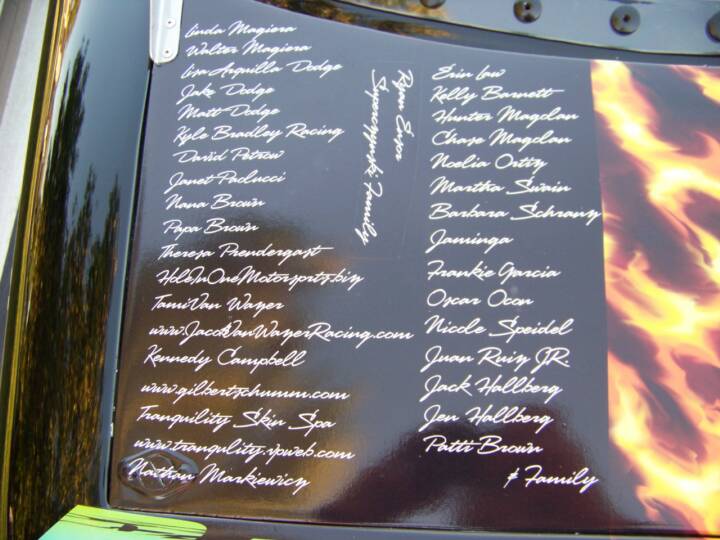 Linda Magiera
Walter Magiera
Lisa Arquilla Dodge
Jake Dodge
Matt Dodge
Kyle Bradley Racing
David Petrew
Janet Paducci
Nana Brown
Papa Brown
Theresa Prendergast
HoleInOneMotorsports.biz
Tami Van Wazer
www.JacobVanWazerRacing.com
Kennedy Campbell
www.gilbertschumm.com
Tranquility Skin Spa
www.tranqulity.vpweb.com
Nathan Markiewicz
Ryan
Family
Erin Law
Kelly Barnett
Hunter Magdan
Chase Magdan
Noelia Ortiz
Martha Swain
Barbara Schranz
Jaminga
Frankie Garcia
Oscar Ocon
Nicole Speidel
Juan Ruiz JR.
Jack Hallberg
Jen Hallberg
Patti Brown
& Family